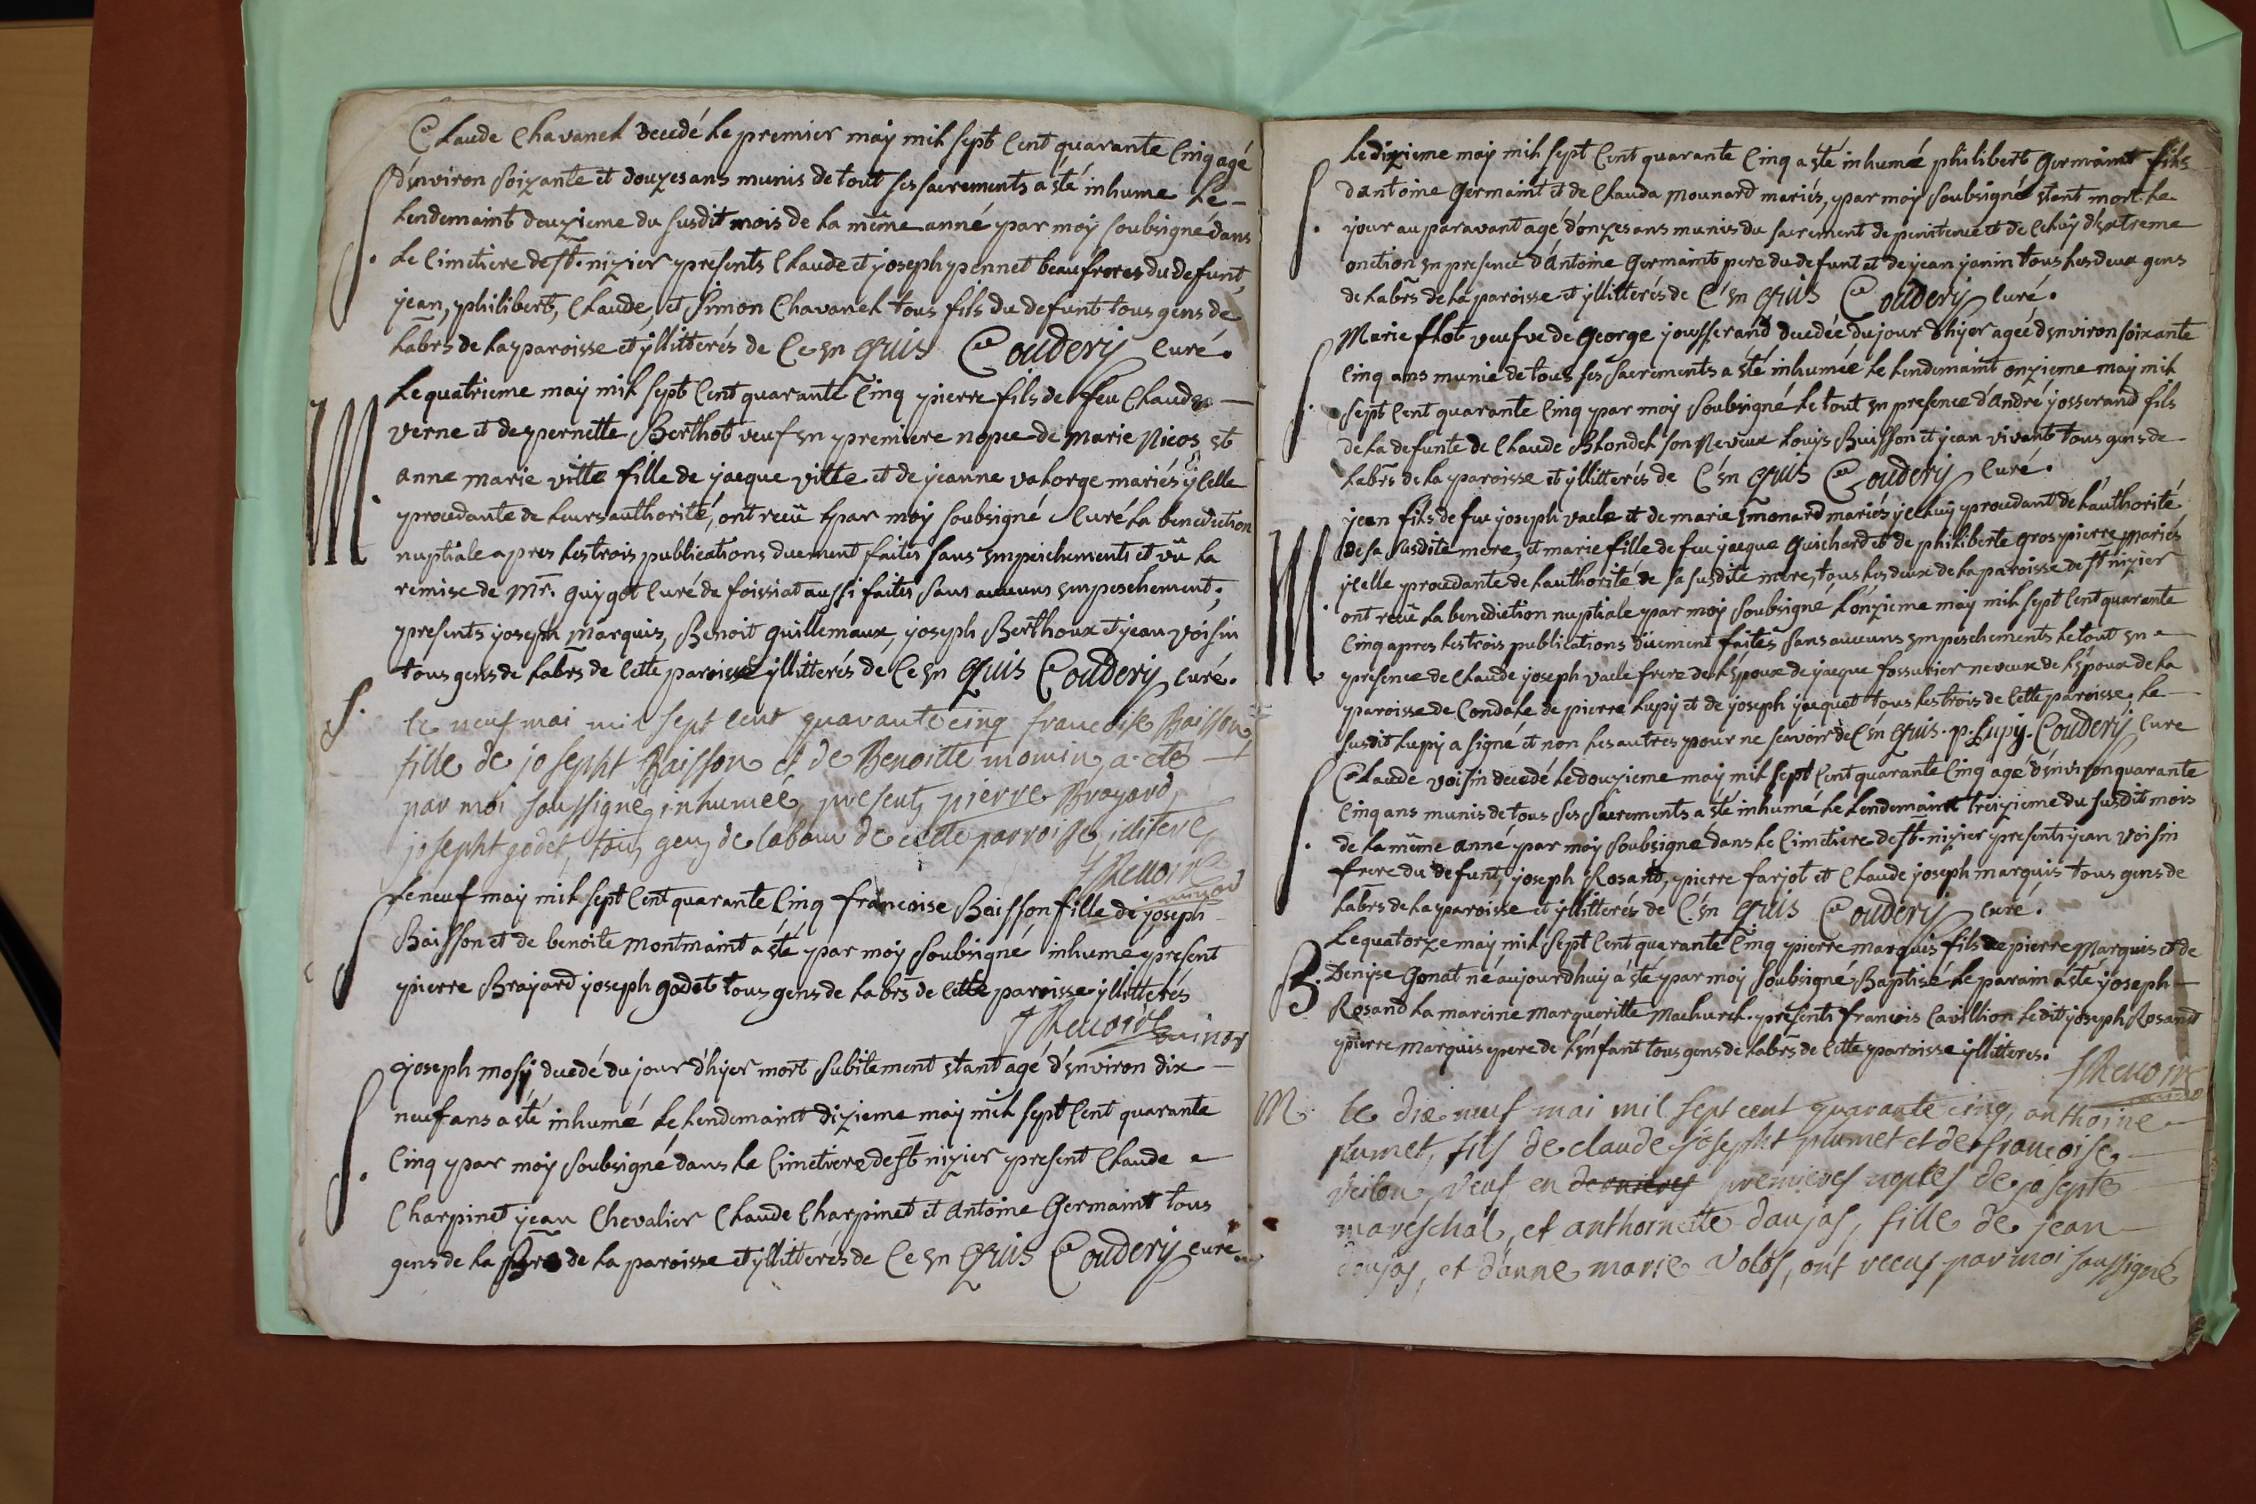 Claude Chavanel decedé le premier may mil sept Cent quarante Cinq agé
d'environ soixante et douzes ans munis de tout ses sacrements a été inhume le
S. lendemaint deuzieme du susdit mois de la même anné par moy soubsigné dans
le Cimetiere de st. nizier presents Claude et joseph pennet beaufreres du defunt,
jean, philibert, Claude, et Simon Chavanel tous fils du defunt tous gens de
labrs de la paroisse et yllitterés de Ce en quis Coudery Curé.
Le quatrieme may mil sept Cent quarante Cinq pierre fils de feu Claude
M. verne et de pernette Berthot veuf en premiere nopce de marie Nicos et
anne marie vitte fille de jacque vitte et de jeanne valorge mariés ycelle
procedante de leurs authorité, ont recû par moy soubsigné Curé la benediction
nuptiale apres les trois publications duement faites sans empeichements et vû la
remise de Mr. guygot Curé de foissiat aussi faites sans aucuns empeschement;
presents joseph marquis, Benoit guillemaux, joseph Berthoux et jean voisin
tous gens de labrs de Cette paroisse yllitterés de Ce en quis Coudery curé.
S. le neuf mai mil sept cent quarante cinq francoise Baisson,
fille de josepht Baisson et de Benoitte momin, a eté
par moi soussigné inhumée, present, pierre Brayard,
josepht godet, tous gens de labour de cette parroisse, illiteres
J Renoird
Le neuf may mil sept Cent quarante Cinq francoise Baisson fille de joseph
S Baisson et de benoite montmaint a été par moy soubsigné inhume present
pierre Brayard joseph godet tous gens de labrs de Cette paroisse yllitterés
J Renoird
joseph mosy decedé du jour d'hyer mort subitement etant agé d'environ dix
neuf ans a été inhumé le lendemaint dizieme may mil sept Cent quarante
S. Cinq par moy soubsigné dans le Cimetiere de st nizier present Claude
Charpinet jean Chevalier Claude Charpinet et Antoine Germaint tous
gens de la de la paroisse et yllitterés de Ce en quis Coudery curé.
Le dizieme may mil sept Cent quarante Cinq a été inhumé philibert Germaint fils
S. d'antoine Germaint et de Clauda mounard mariés, par moy soubsigné etant mort le
jour au paravant agé d'onzes ans munis du sacrement de penitence et de Celuy d'extreme
onction en presence d'Antoine Germaint pere du defunt et de jean janin tous les deux gens
de labrs de la paroisse et yllitterés de C'en quis Coudery Curé.
Marie flot veufve de George jousserand decedée du jour d'hyer ageé d'environ soixante
S. Cinq ans munie de tous ses Sacrements a été inhumée le lendemaint onzieme may mil
Sept Cent quarante Cinq par moy soubsigné le tout en presence d'André josserand fils
de la defunte de Claude Blondel son Neveux Louis Buisson et jean vivant tous gens de
labrs de la paroisse et yllitterés de C'en quis Coudery Curé.
jean fils de feu joseph vacle et de marie monard mariés ycelluy procedant de l'authorité
M. de sa susdite mere, et marie fille de feu jacque Guichard et de philiberte gros pierre mariés
ycelle procedante de l'authorité de sa susdite mere, tous les deux de la paroisse de st nizier
ont recû la benediction nuptiale par moy soubsigné l'onzieme may mil sept Cent quarante
Cinq apres les trois publications duement faites sans aucuns empeschements le tout en
presence de Claude joseph vacle frere de l'epoux de jacque fossurier neveux de l'epoux de la
paroisse de Condale de pierre Lupy et de joseph jacquet tous les trois de Cette paroisse; le
susdit Lupy a signé et non les autres pour ne scavoir de C'en quis. P. Lupy. Coudery Cure
Claude voisin decedé le douzieme may mil sept Cent quarante Cinq agé d'environ quarante
S. Cinq ans munis de tous ses sacrements a été inhumé le lendemaint treizieme du susdit mois
de la même anné par moy soubsigné dans le Cimetiere de st. nizier present jean Voisin
frere du defunt, joseph Rosand, pierre farjot et Claude joseph marquis tous gens de
labrs de la paroisse et yllitterés de C'en quis Coudery curé.
Le quatorze may mil sept Cent quarante Cinq pierre marquis fils de pierre Marquis et de
B. Denyse Gonat né aujourdhuy a été par moy soubsigné Baptisé le parain a été joseph
Rosand la marcine margueritte Machurel presents francois Cavillion le dit joseph Rosand
pierre Marquis pere de l'enfant tous gens de labrs de Cette paroisse yllitteres.
J Renoird
M. le dix neuf mai mil sept cent quarante cinq, anthoine
plumet, fils de claude josepht plumet et de francoise
veilon, veuf en dernieres premieres noptes de josepte
mareschal, et anthoinette daujas, fille de jean
daujas, et d'anne marie volos, ont receus par moi soussigné